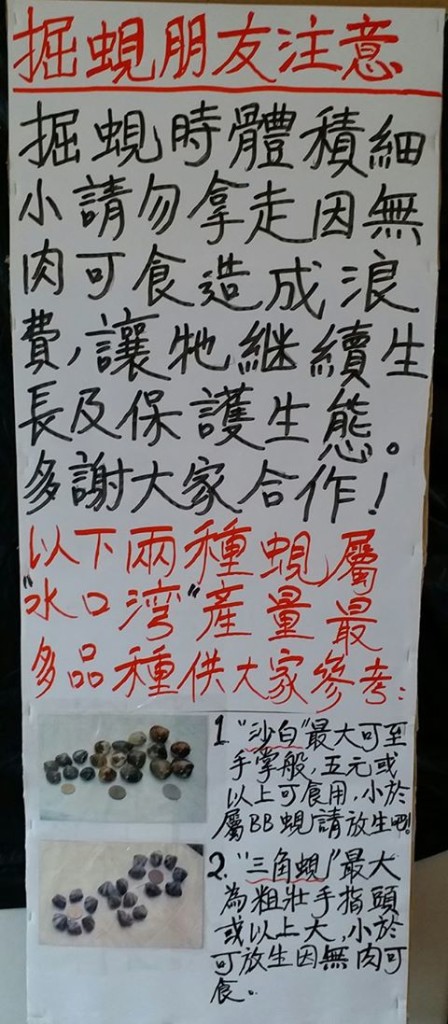 掘蜆朋友注意
掘蜆時體積細
小請勿拿走因無
肉可食造成浪
費,讓牠繼續生
長及保護生態。
多謝大家合作!
以下兩種蜆屬
"水口湾"產量最
多品種供大家參考:
1."沙白"最大可至
手掌般,五元或
以上可食用,小於
屬BB蜆請放生吧!
2."三角蜆"最大
為粗壯手指頭
或以上大,小於
可放生因無肉可
食。